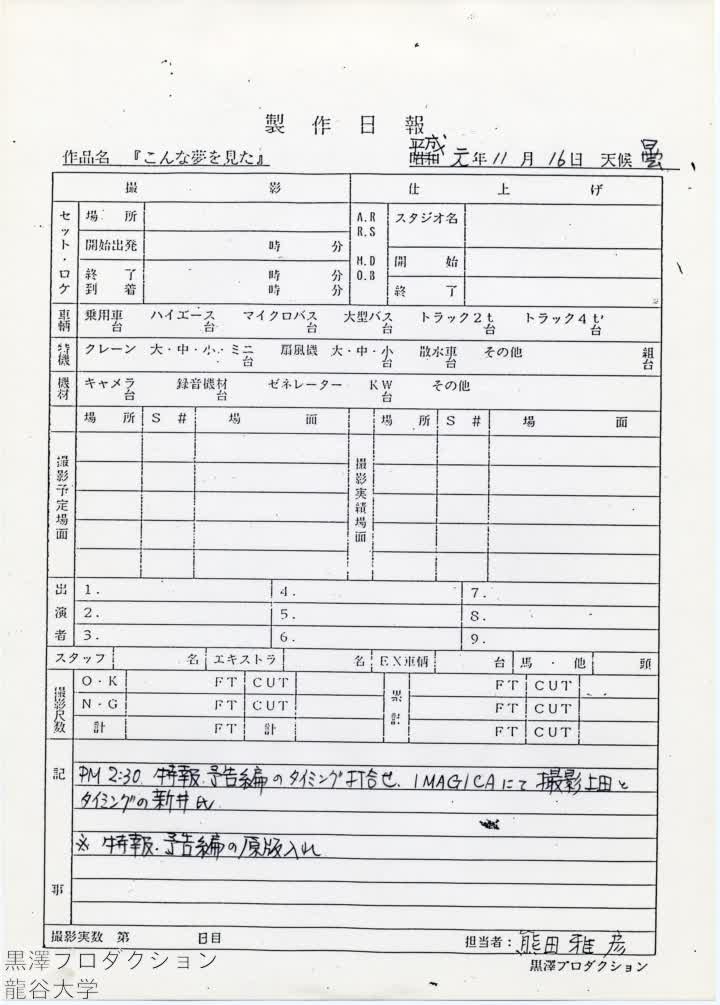 製作日報
作品名 『こんな夢を見た』 平成 昭和 元年11月16日 天候 曇
撮影 仕上げ
セット・ロケ 場所 A.R R.S スタジオ名
開始出発 時 分
M.D O.B 開始
終了 時 分
到着 時 分 終了
車輌 乗用車 台 ハイエース 台 マイクロバス 台 大型バス 台 トラック2t 台 トラック4t 台
特機 クレーン 大・中・小・ミニ 台 扇風機 大・中・小 台 散水車 台 その他 組 台
機材 キャメラ 台 録音機材 台 ゼネレーター KW 台 その他
場所 S# 場面 場所 S# 場面
撮影予定場面 撮影実績場面
出演者 1. 4. 7.
2. 5. 8.
3. 6. 9.
スタッフ 名 エキストラ 名 EX車輌 台 馬・他 頭
撮影尺数 O・K FT CUT 累計 FT CUT
N・G FT CUT FT CUT
計 FT 計 FT CUT
記事
PM 2:30 特報.予告編のタイミング打合せ、IMAGICAにて 撮影上田と
タイミングの新井氏
※ 特報.予告編の原版入れ
撮影実数 第 日目 担当者:熊田雅彦
黒澤プロダクション
黒澤プロダクション
龍谷大学